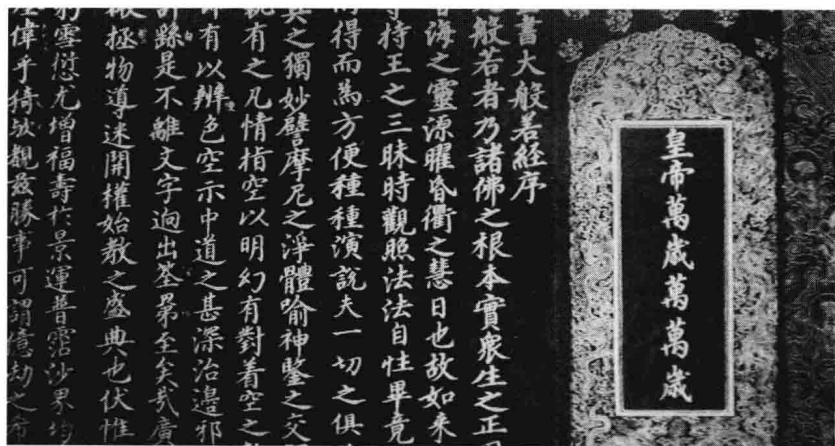 皇帝萬歲萬萬歲
書大般若經序
般若者乃諸佛之根本實眾生之正
海之靈源曜昏衢之慧日也故如来
持王之三昧時觀照法法自性畢竟
得而為方便種種演說夫一切之俱
其之獨妙譬摩尼之淨體喻神鑒之交
執有之凡情指空以明幻有對着空之
有以辨色空示中道之甚深治邉邪
繇是不離文字迥出荃第至矣哉廣
拯物導迷開權始教之盛典也伏惟
雪愆尤增福壽於景運普霑沙界均
偉乎猗歟覩茲勝事可謂億劫之